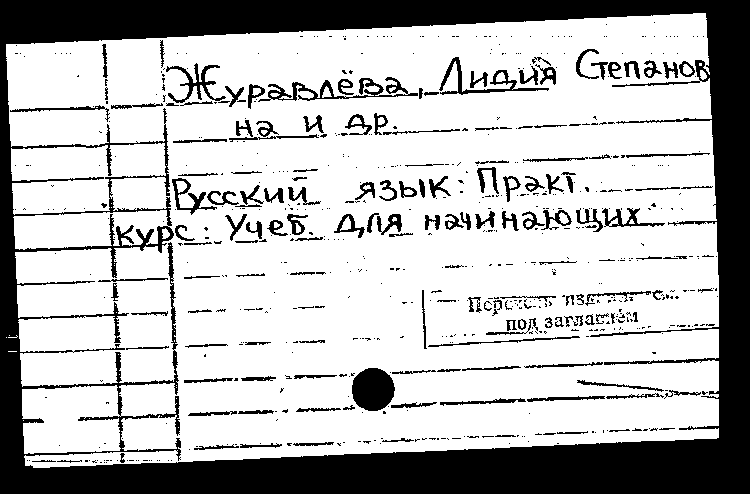 Журавлёва, Лидия Степанов
на и др.
Русский язык: Практ.
курс: Учеб. для начинающих
Перечень издан. см.
под заглавием